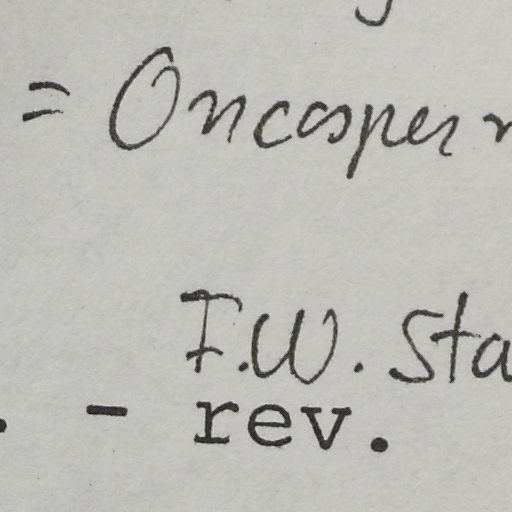 = Oncosper
F.W. Sta
. - rev.